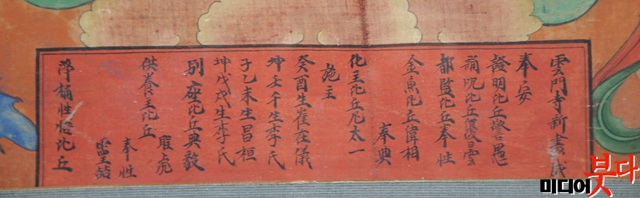 雲門寺新畵成
奉安
證明比丘
誦呪比丘
都監比丘奉性
金魚比丘偉相
奉典
化主比丘尼太一
施主
癸酉生崔
坤壬午生李氏
子乙未生昌桓
坤戊戌生李氏
別座比丘莫敎
供養主比丘
暇虎
奉性
淨桶性悟比丘
미디어붓다